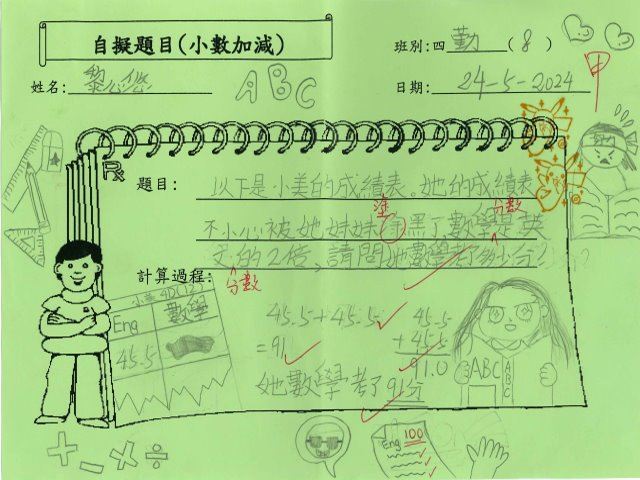 自擬題目(小數加減)
班別:四 勤 ( 8 )
姓名: 黎心悠
日期: 24-5-2024
甲
ABC
題目: 以下是小美的成績表。她的成績表
塗 分數
不小心被她妹妹黑了,數學是英
文的2倍、請問她數學考了多少分?
分數
計算過程:
小美 4D(12)
Eng 數學
45.5
45.5+45.5
=91
45.5
+ 45.5
91.0
她數學考了91分
ABC
ABC
Eng 100